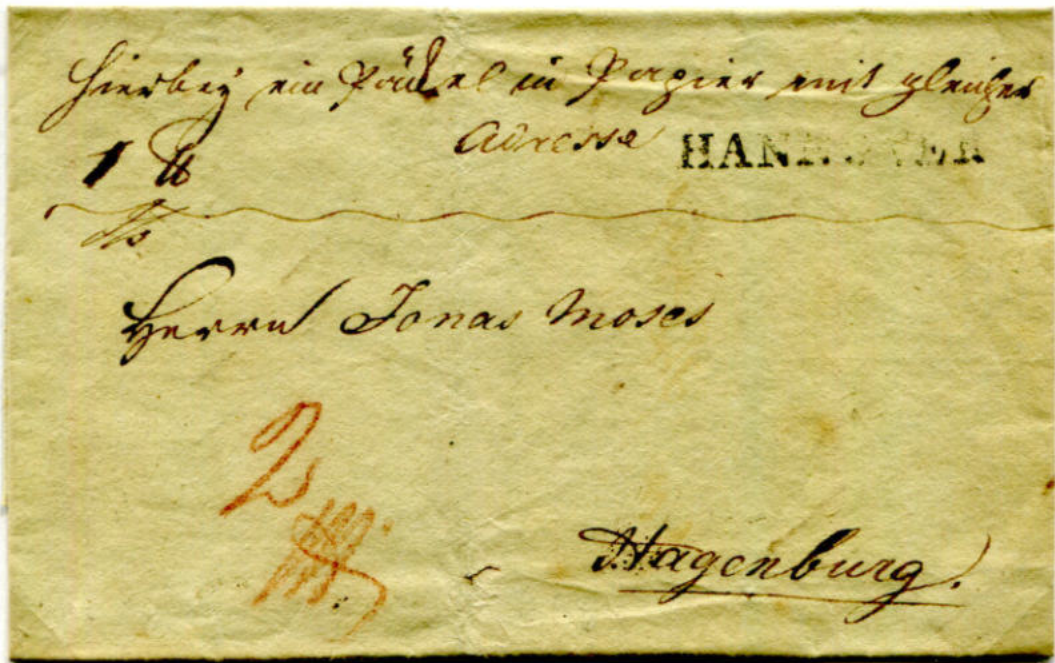 Hierbey ein Päckel in Papier mit gleicher
Adresse HANNOVER
1 ℔
Herrn Jonas Moses
2
Hagenburg.